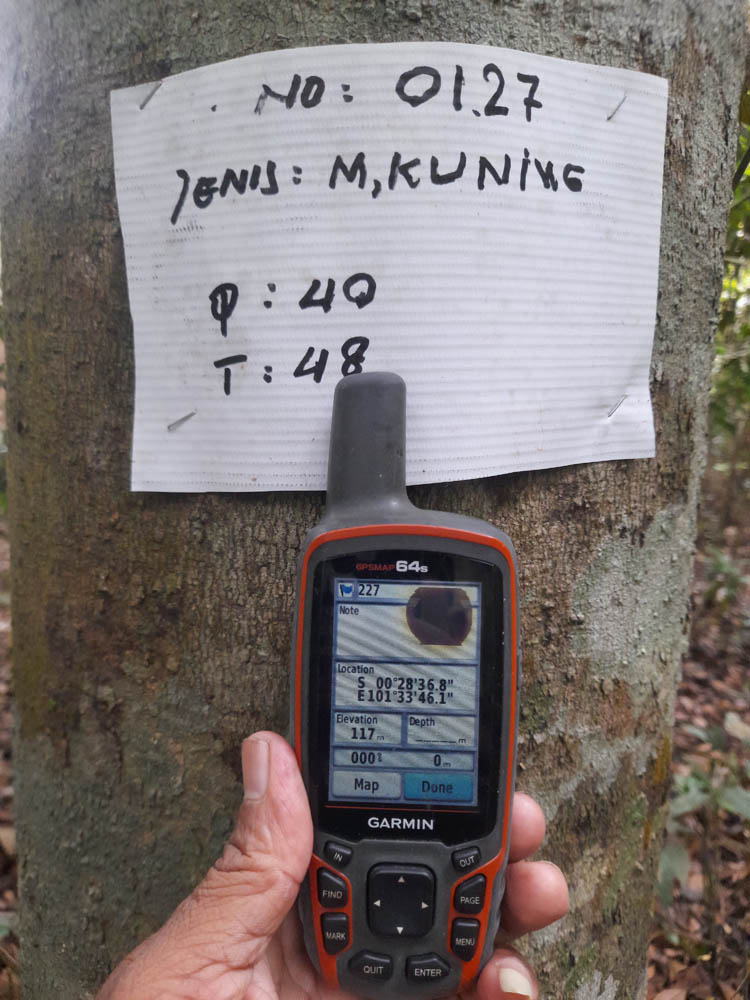 NO: 01.27
JENIS: M,KUNING
Φ: 40
T: 48
GPSMAP 64s
227
Note
Location
S 00°28'36.8"
E101°33'46.1"
Elevation Depth
117m _____m
000° 0m
Map Done
GARMIN
IN OUT
FIND PAGE
MARK MENU
QUIT ENTER